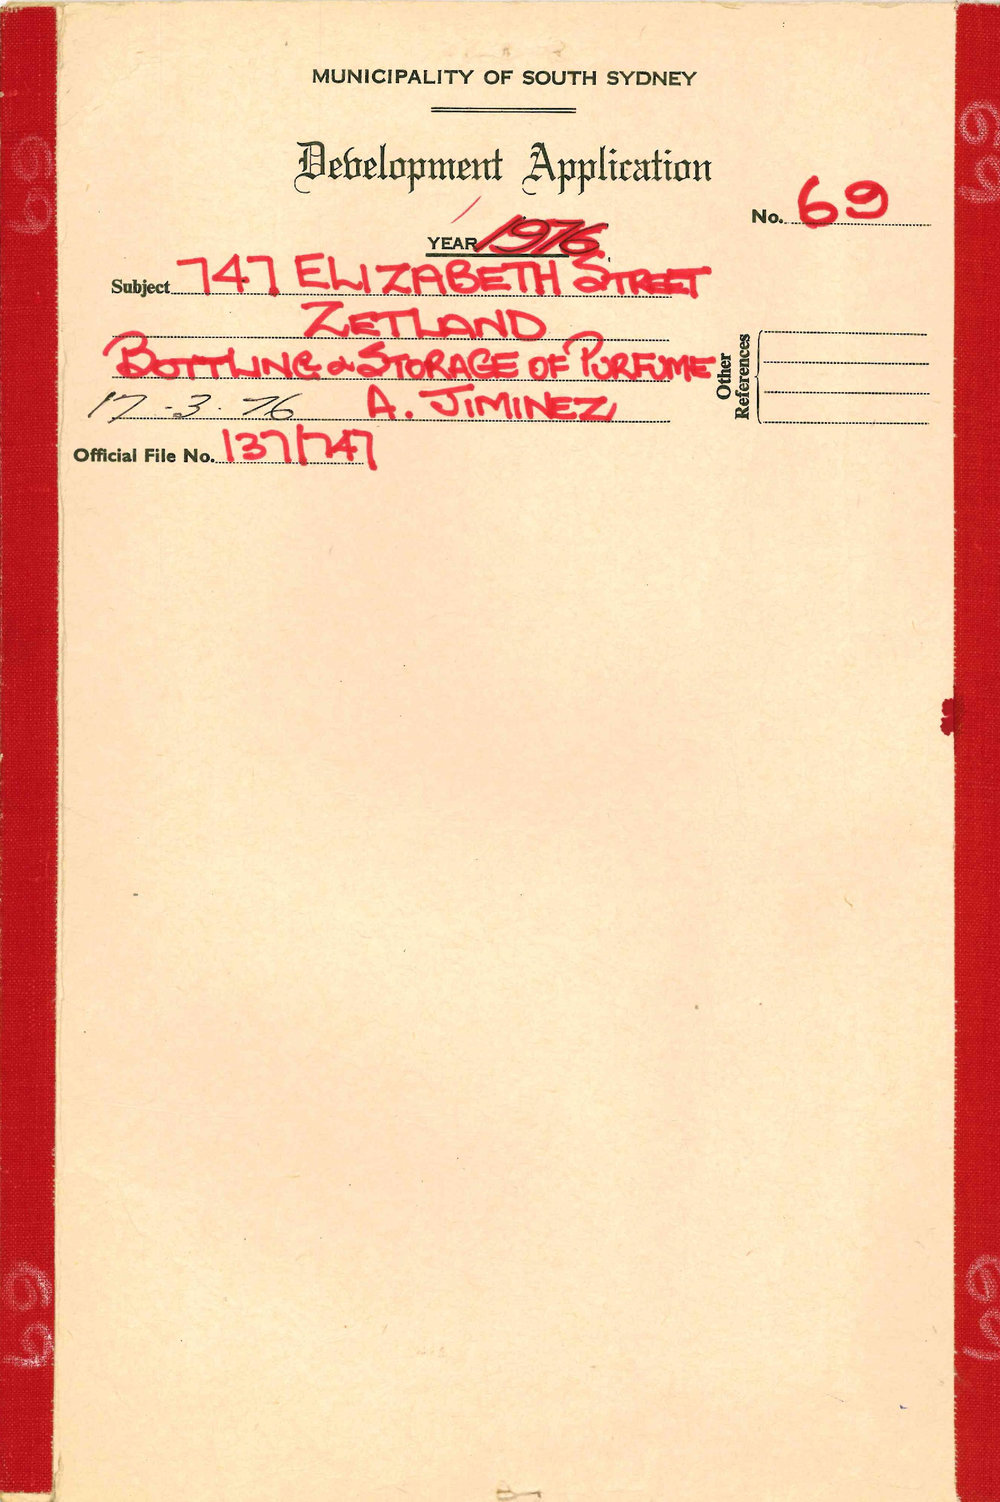 MUNICIPALITY OF SOUTH SYDNEY
Development Application
No. 69
YEAR 1976
Subject 747 ELIZABETH STREET
ZETLAND
BOTTLING & STORAGE OF PURFUME
17-3-76 A. JIMINEZ
Other References
Official File No. 137/747
69
69
69
69